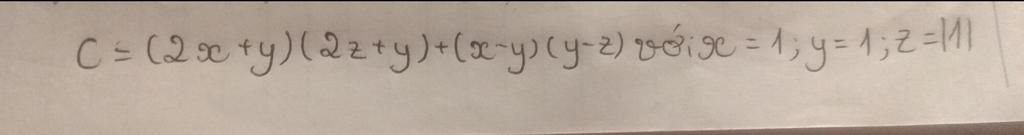 C = (2x+y)(2z+y)+(x-y)(y-z) với x = 1; y = 1; z = |1|